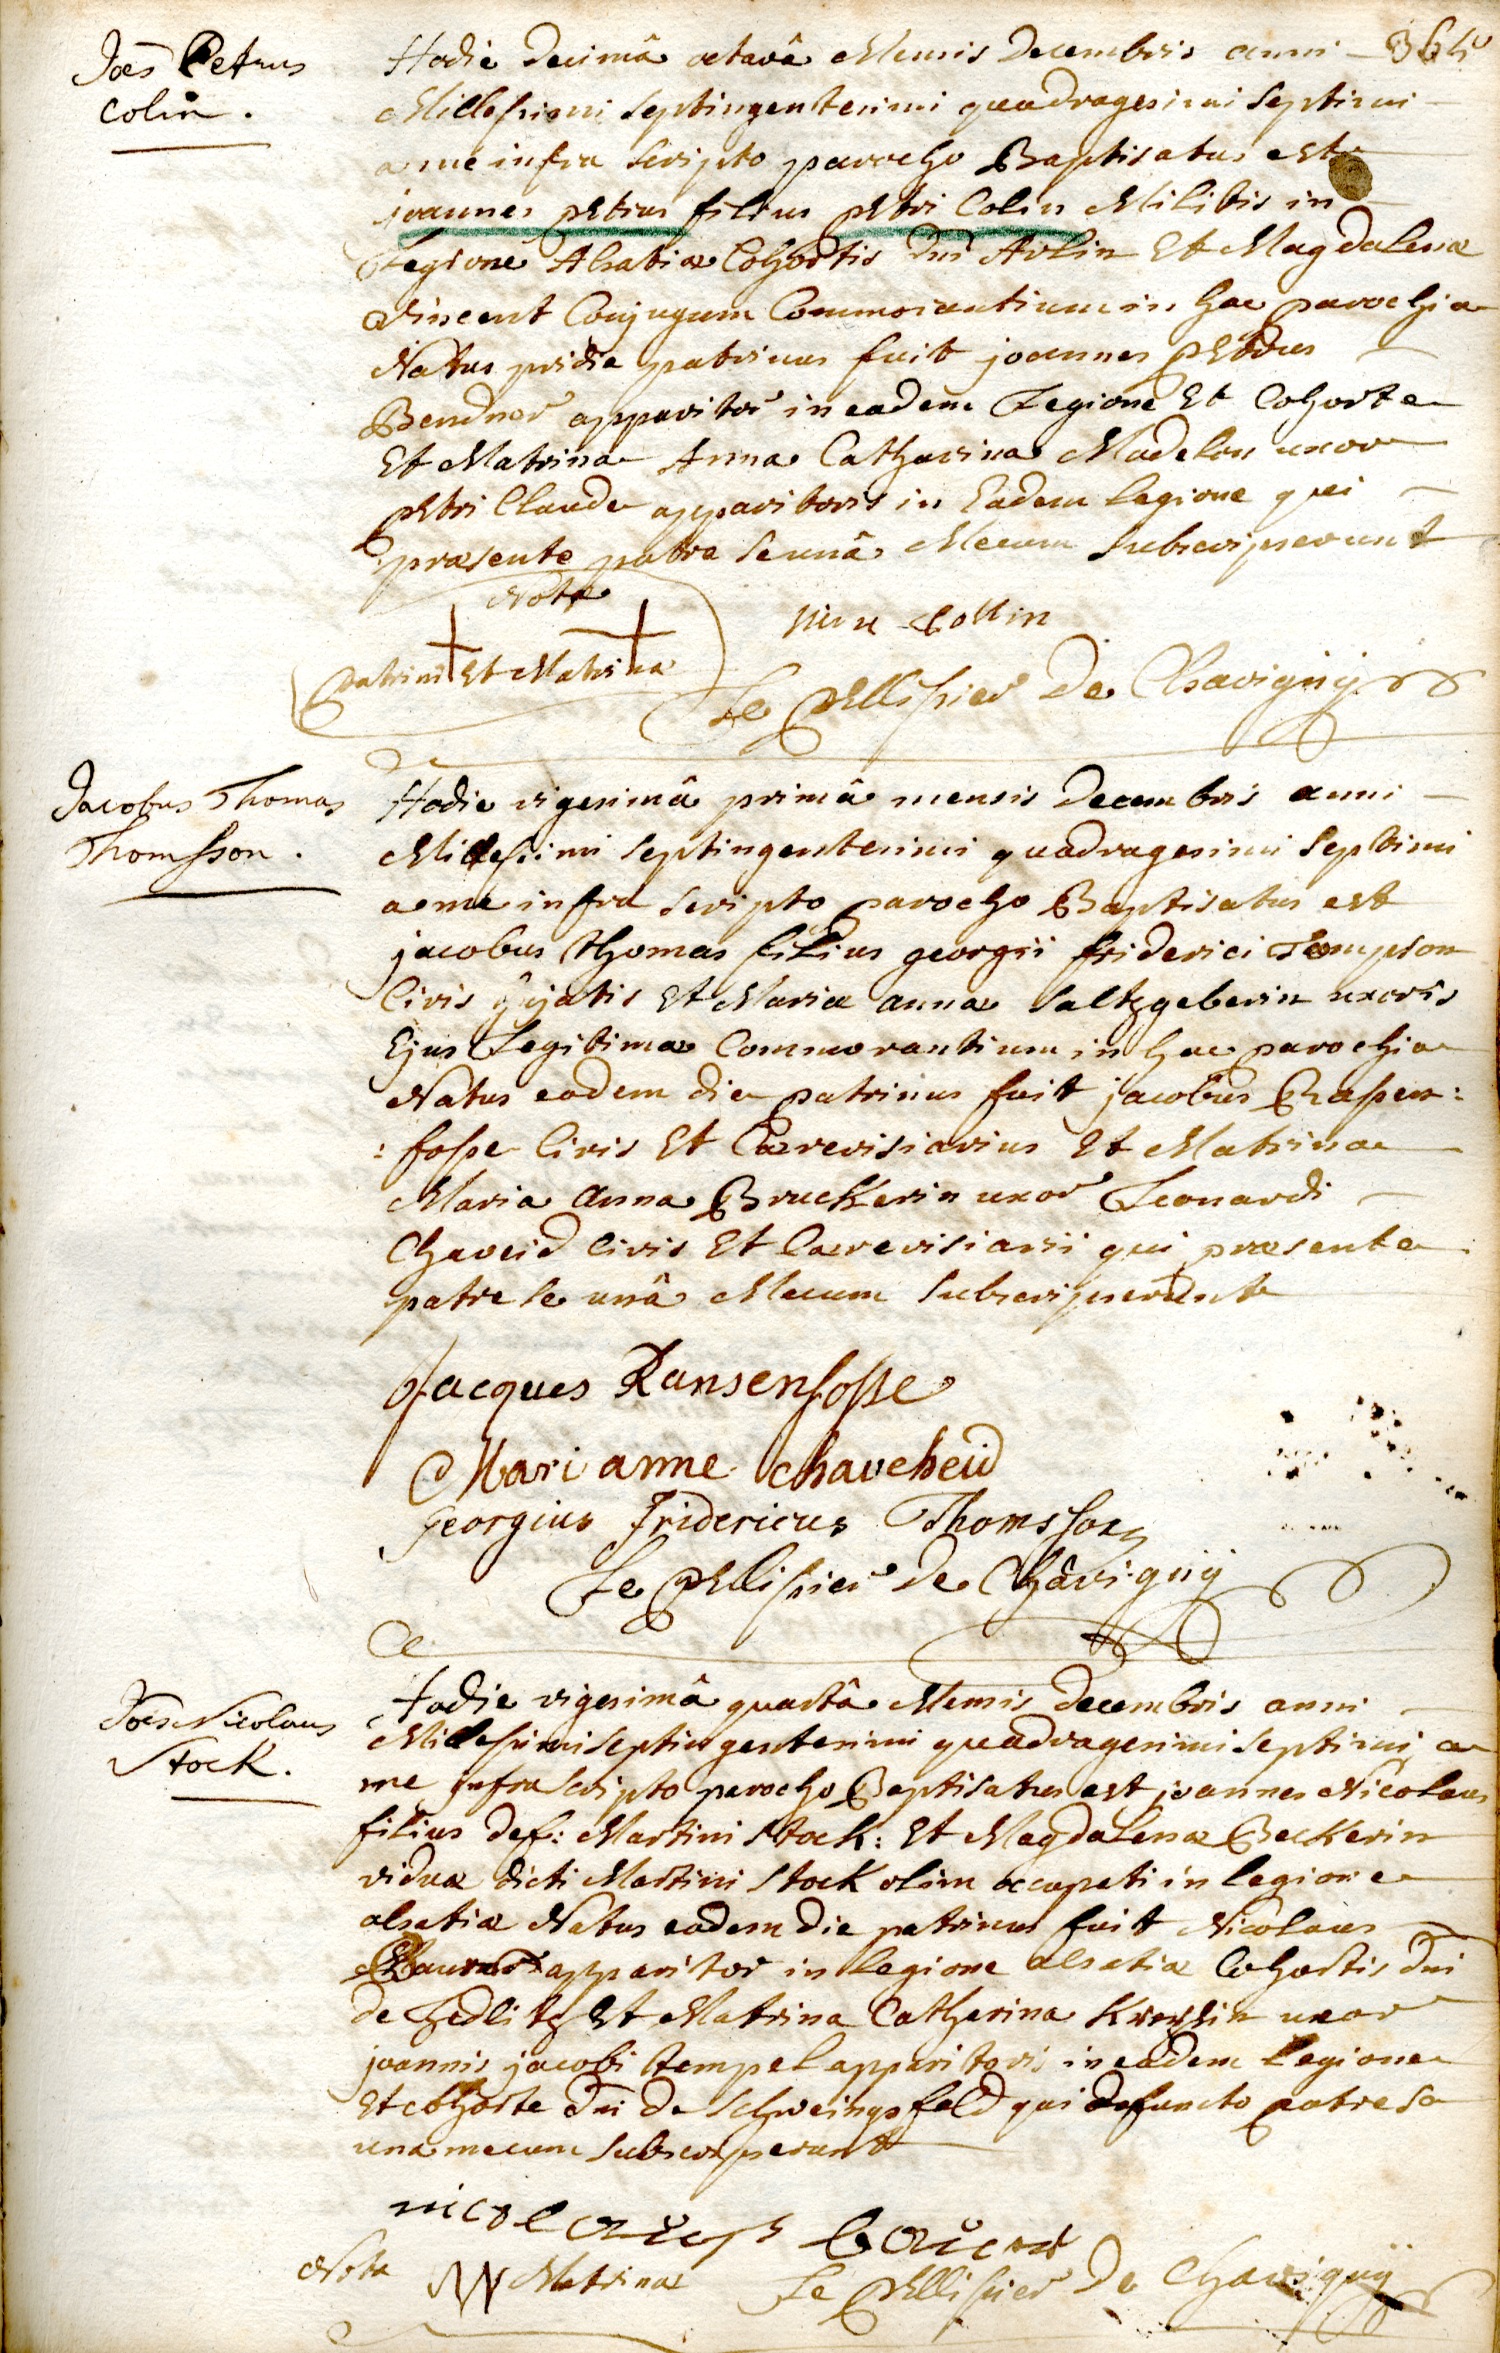 Joēs Petrus
Colin.
Hodie decimâ octavâ Mensis Decembris anni
Millesimi septingentesimi quadragesimi septimi
a me infra scripto parocho Baptisatus est
joannes petrus filius petri Colin Militis in
Legione Alsatiæ Cohortis Dnī Arlin Et Magdalena
Vincent Conjugum Commorantium in hac parochia
Natus pridie patrinus fuit joannes petrus
Bendner apparitor in eadem Legione Et Cohorte
Et Matrina Anna Catharina Madelon uxor
petri Claude apparitoris in Eadem legione qui
præsente patre se unâ Mecum subscripserunt
Nota
Patrini Et Matrina
Collin
Le pellissier De Chavignÿ
Jacobus Thomas
Thomsson.
Hodie vigesimâ primâ mensis Decembris anni
Millesimi septingentesimi quadragesimi septimi
a me infra scripto parocho Baptisatus est
jacobus thomas filius georgii friderici Tompson
Civis hujatis Et Maria anna saltzgeberin uxoris
Ejus Legitima Commorantium in hac parochia
Natus eadem die patrinus fuit jacobus Rasen:
:fosse Civis Et Cærevisiarius Et Matrina
Maria anna Bruckerin uxor Leonardi
Chaveid Civis Et Cærevisiarii qui præsente
patre se unâ Mecum subscripserunt
Jacques Ransenfosse
Mari anne chavcheid
georgius Fridericus Thomsson
Le pellissier De Chavignÿ
Joēs Nicolaus
Stock.
Hodie vigesimâ quartâ Mensis Decembris anni
Millesimi septingentesimi quadragesimi septimi a
me infra scripto parocho Baptisatus est joannes Nicolaus
filius def: Martini Stock: Et Magdalena Beckerin
vidua dicti Martini Stock olim occupati in legione
alsatiæ Natus eadem die patrinus fuit Nicolaus
apparitor in legione alsatiæ Cohortis Dnī
de Zedlitz Et Matrina Catharina uxor
joannis jacobi tempel apparitoris in eadem Legione
Et cohorte Dnī De Schweingsfeld qui defuncto patre se
una mecum subscripserunt
nicolauss
Nota Matrina Le pellissier De Chavignÿ